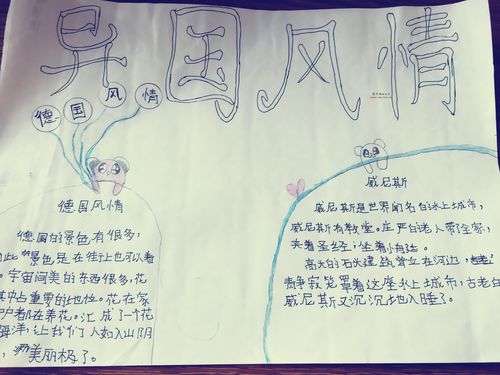 异国风情
德国风情
德国风情
德国的景色有很多,
此 景色是在街上也可以看
宇宙间美的东西很多,花
其中占重要的地位。花在家
户都在养花。汇成了一个花
海洋,让我们人如入山阴
,美丽极了。
威尼斯
威尼斯是世界闻名的水上城市,
威尼斯有教堂。庄严的老人带了全家,
夹着圣经,坐着小艇
高大的石头建筑耸立在河边,
静寂笼罩着这座水上城市,古老的
威尼斯又沉沉地入睡了。